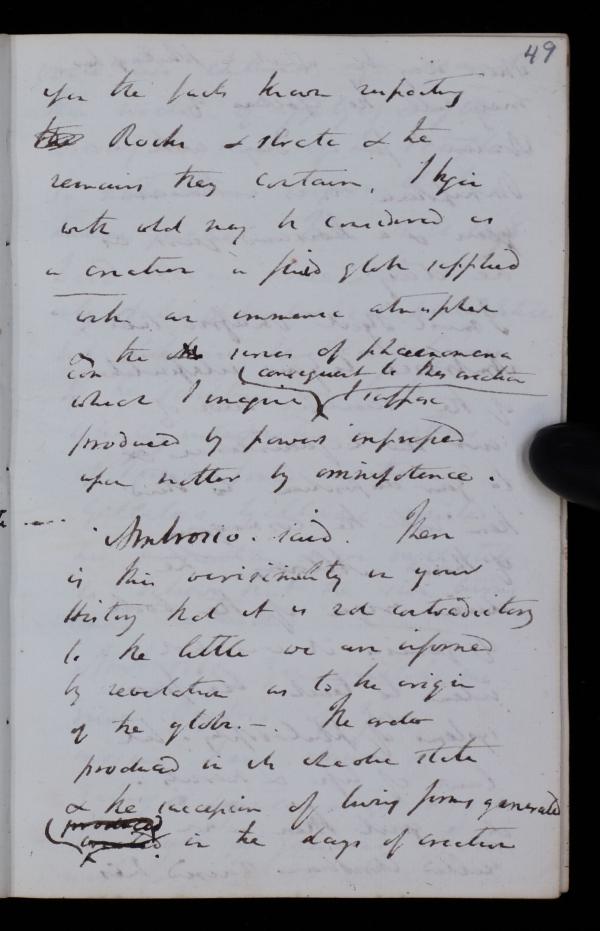 49
upon the facts known respecting
Rocks & strata & the
remains they contain, I begin
with what may be considered as
a creation a fluid globe supplied
with an immense atmosphere
& the series of phaenomena
consequent to this creation
which I imagine I suppose
produced by powers impressed
upon matter by omnipotence.
Ambrosio. said. There
is this verisimility in your
History that it is not contradictory
to the little we are informed
by revelation as to the origin
of the globe. -. The order
produced in its chaotic state
& the succession of living forms generated
in the days of creation